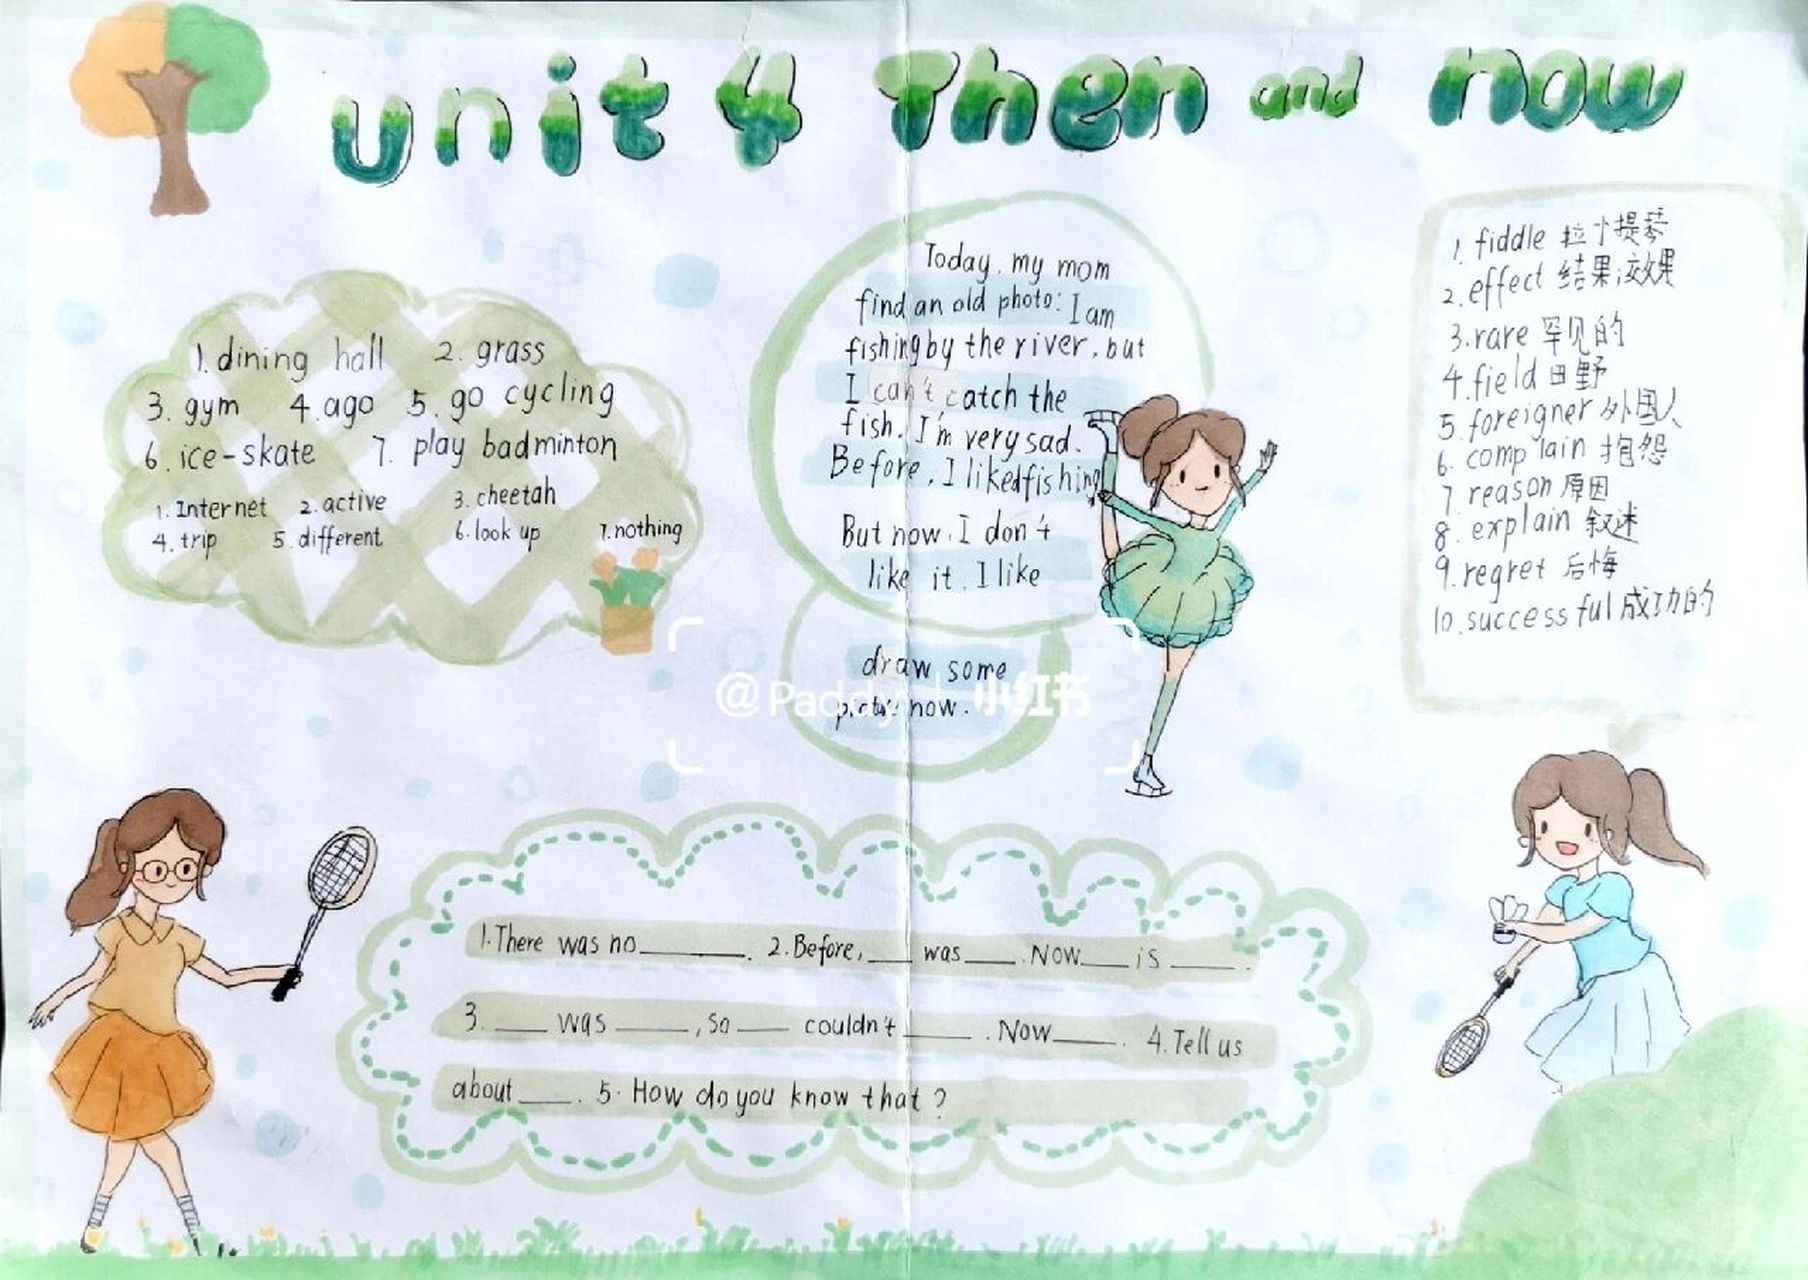 unit 4 Then and now
1. dining hall 2. grass
3. gym 4. ago 5. go cycling
6. ice-skate 7. play badminton
1. Internet 2. active 3. cheetah
4. trip 5. different 6. look up 7. nothing
Today, my mom
find an old photo: I am
fishing by the river, but
I can't catch the
fish. I'm very sad.
Before, I liked fishing
But now, I don't
like it, I like
draw some
picture now.
@Paddy 小红书
1. fiddle 拉小提琴
2. effect 结果;效果
3. rare 罕见的
4. field 田野
5. foreigner 外国人
6. complain 抱怨
7. reason 原因
8. explain 叙述
9. regret 后悔
10. successful 成功的
1. There was no ______. 2. Before, ___ was ___. Now ___ is ___.
3. ___ was ____, so ___ couldn't ____. Now ____. 4. Tell us
about ___. 5. How do you know that?